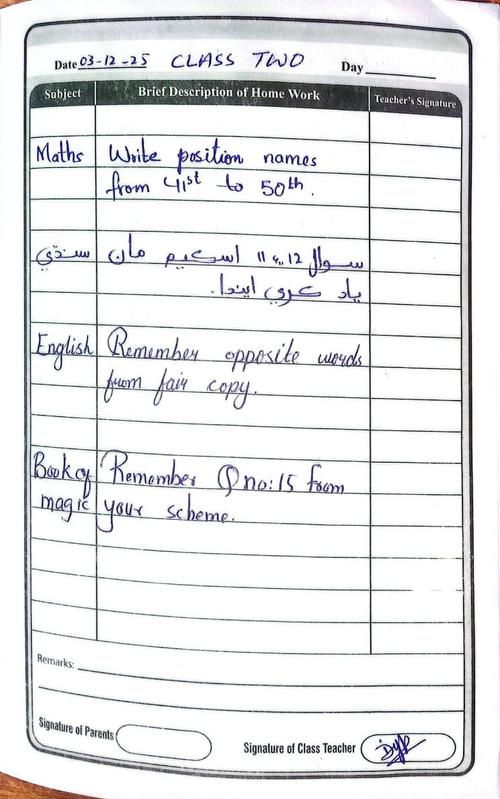 Date 03-12-25 CLASS TWO Day
Subject Brief Description of Home Work Teacher's Signature
Maths Write position names
from 41st to 50th.
سنڌي سوال 12 ۽ 11 اسڪيم مان
ياد ڪري ايندا.
English Remember opposite words
from fair copy.
Book of Remember Q no:15 from
magic your scheme.
Remarks:
Signature of Parents Signature of Class Teacher